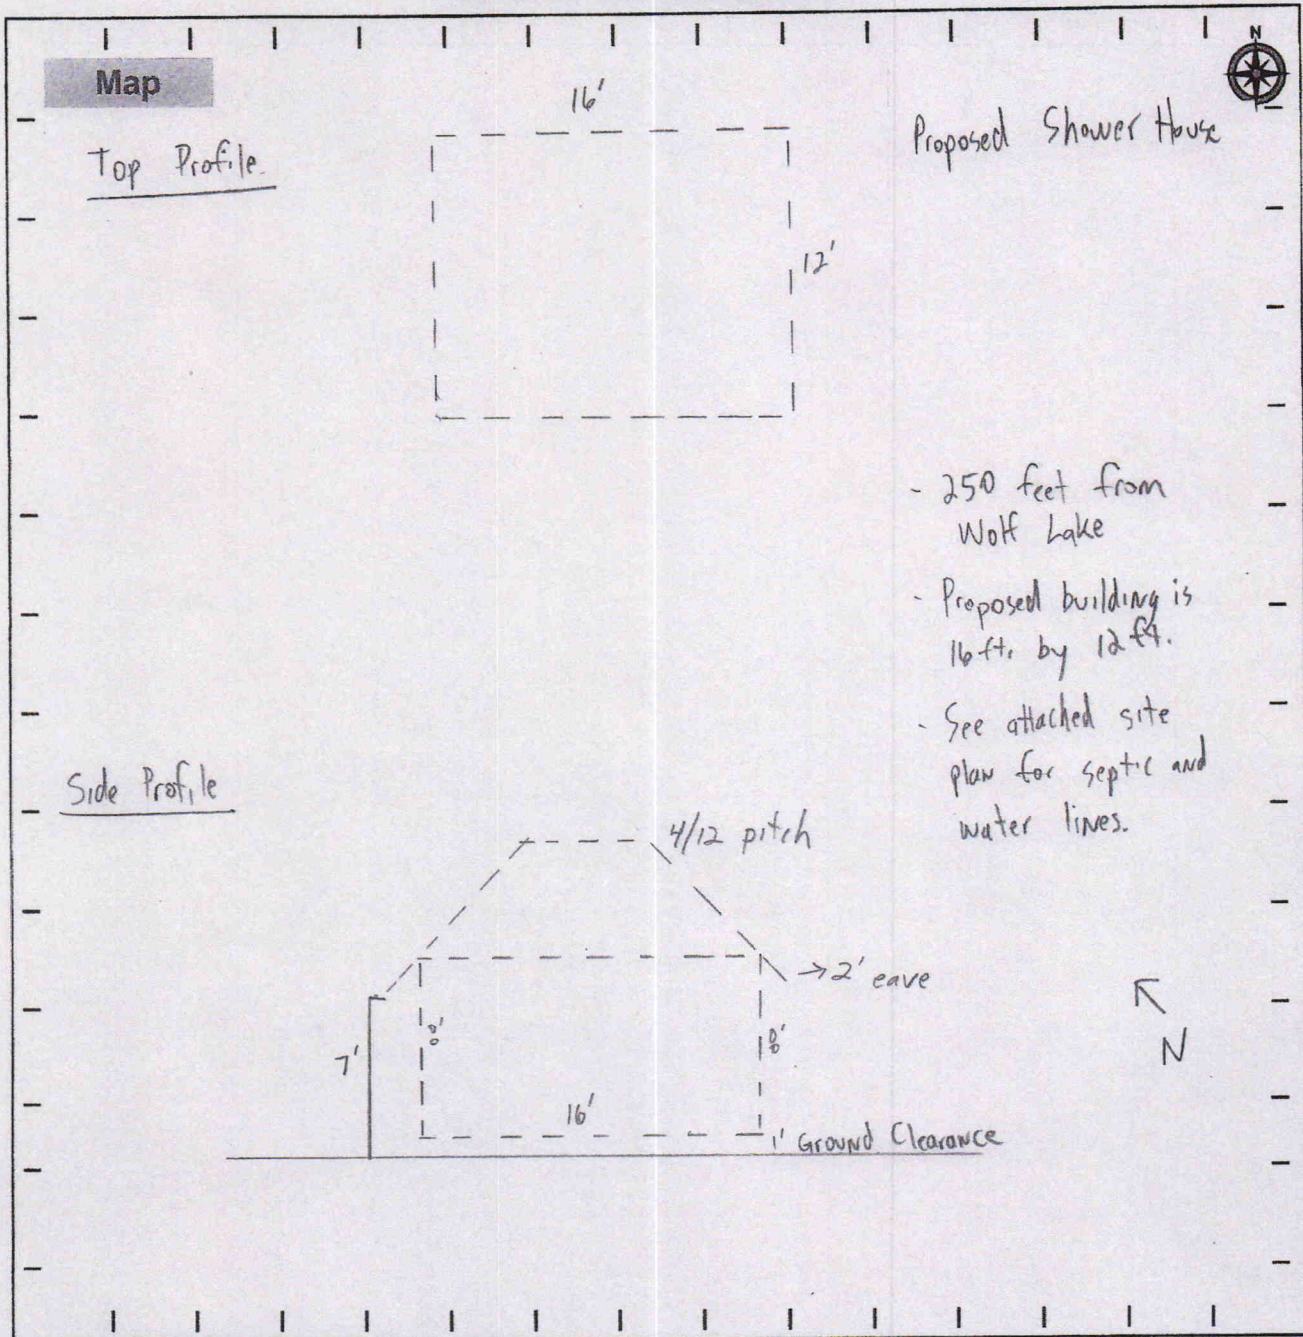 N
Map
Top Profile.
16'
12'
Proposed Shower House
- 250 feet from
Wolf Lake
- Proposed building is
16 ft. by 12 ft.
- See attached site
plan for septic and
water lines.
Side Profile
4/12 pitch
→ 2' eave
8'
8'
7'
16'
1' Ground Clearance
N